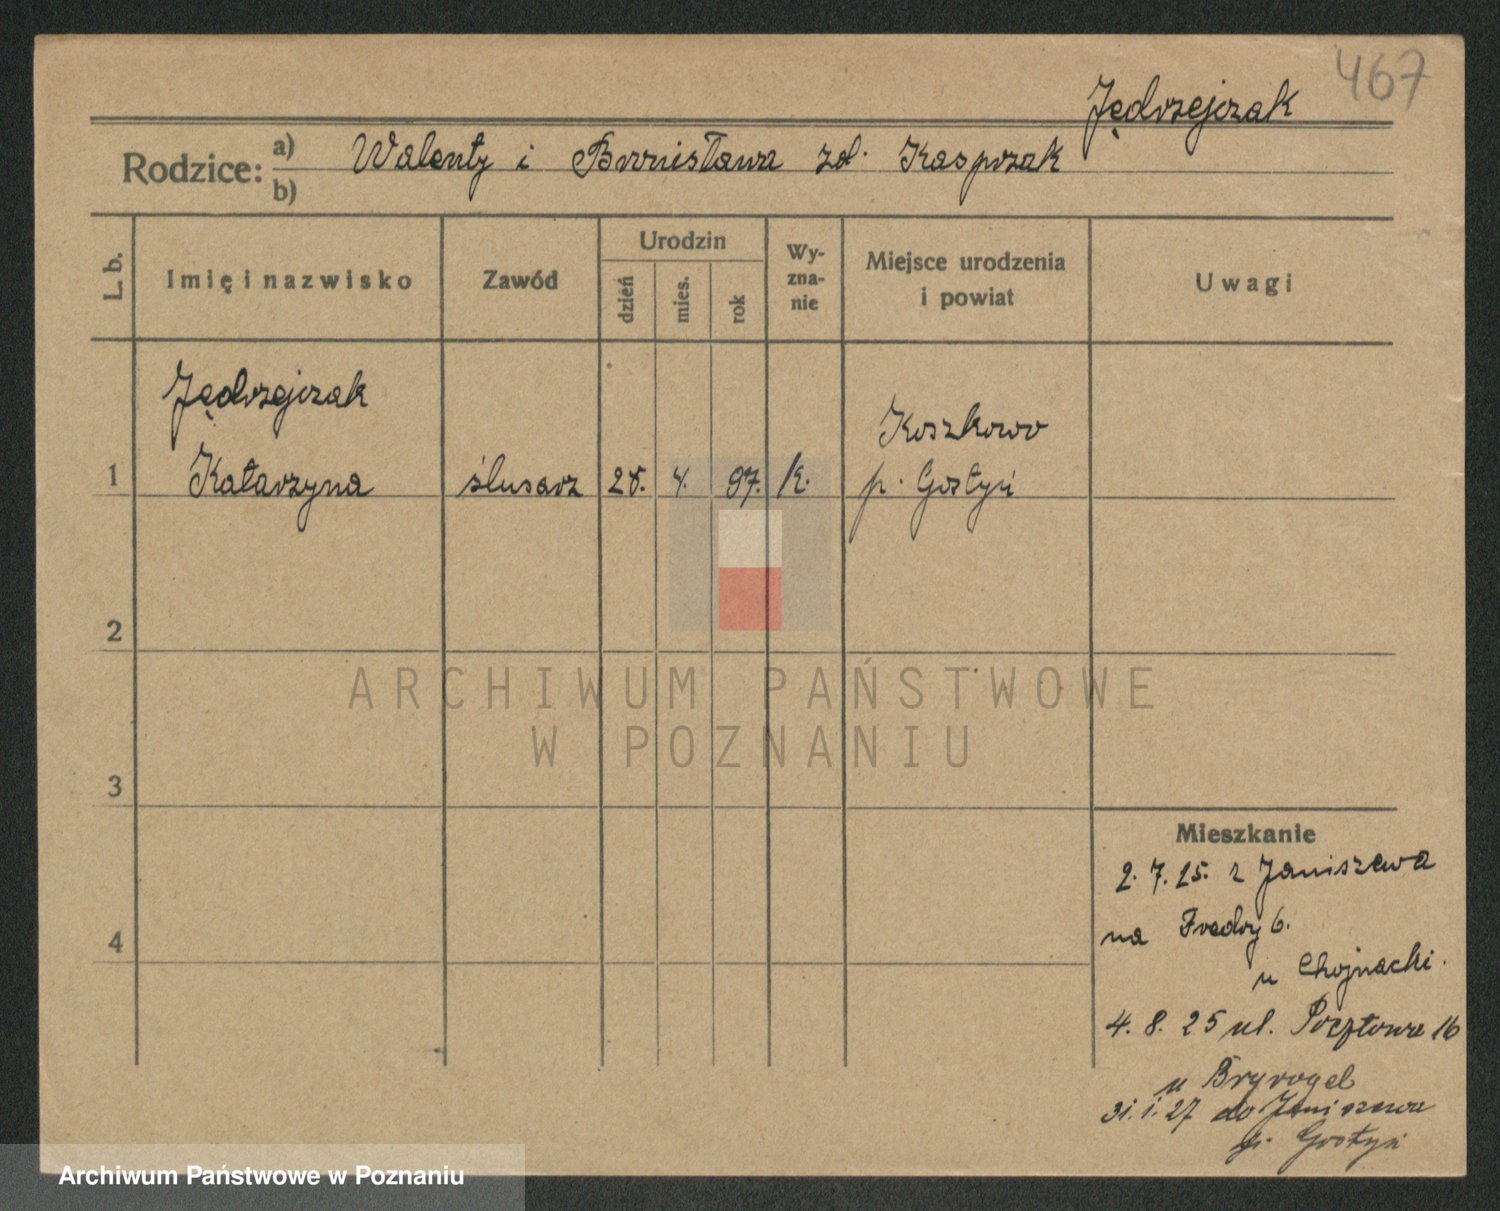 467
Jędrzejczak
Rodzice: a) Walenty i Bronisława zd. Kasprzak
b)
L. b.
Imię i nazwisko
Zawód
Urodzin
dzień
mies.
rok
Wy-
zna-
nie
Miejsce urodzenia
i powiat
Uwagi
Jędrzejczak
Koszkowo
1 Katarzyna ślusarz 28. 4. 97. k. p. Gostyń
2
ARCHIWUM PAŃSTWOWE
W POZNANIU
3
Mieszkanie
2. 7. 25. z Janiszewa
4
na Fredry 6.
u Chojnacki.
4. 8. 25 ul. Pocztowa 16
u
31. 1. 27 do Janiszewa
p. Gostyń
Archiwum Państwowe w Poznaniu